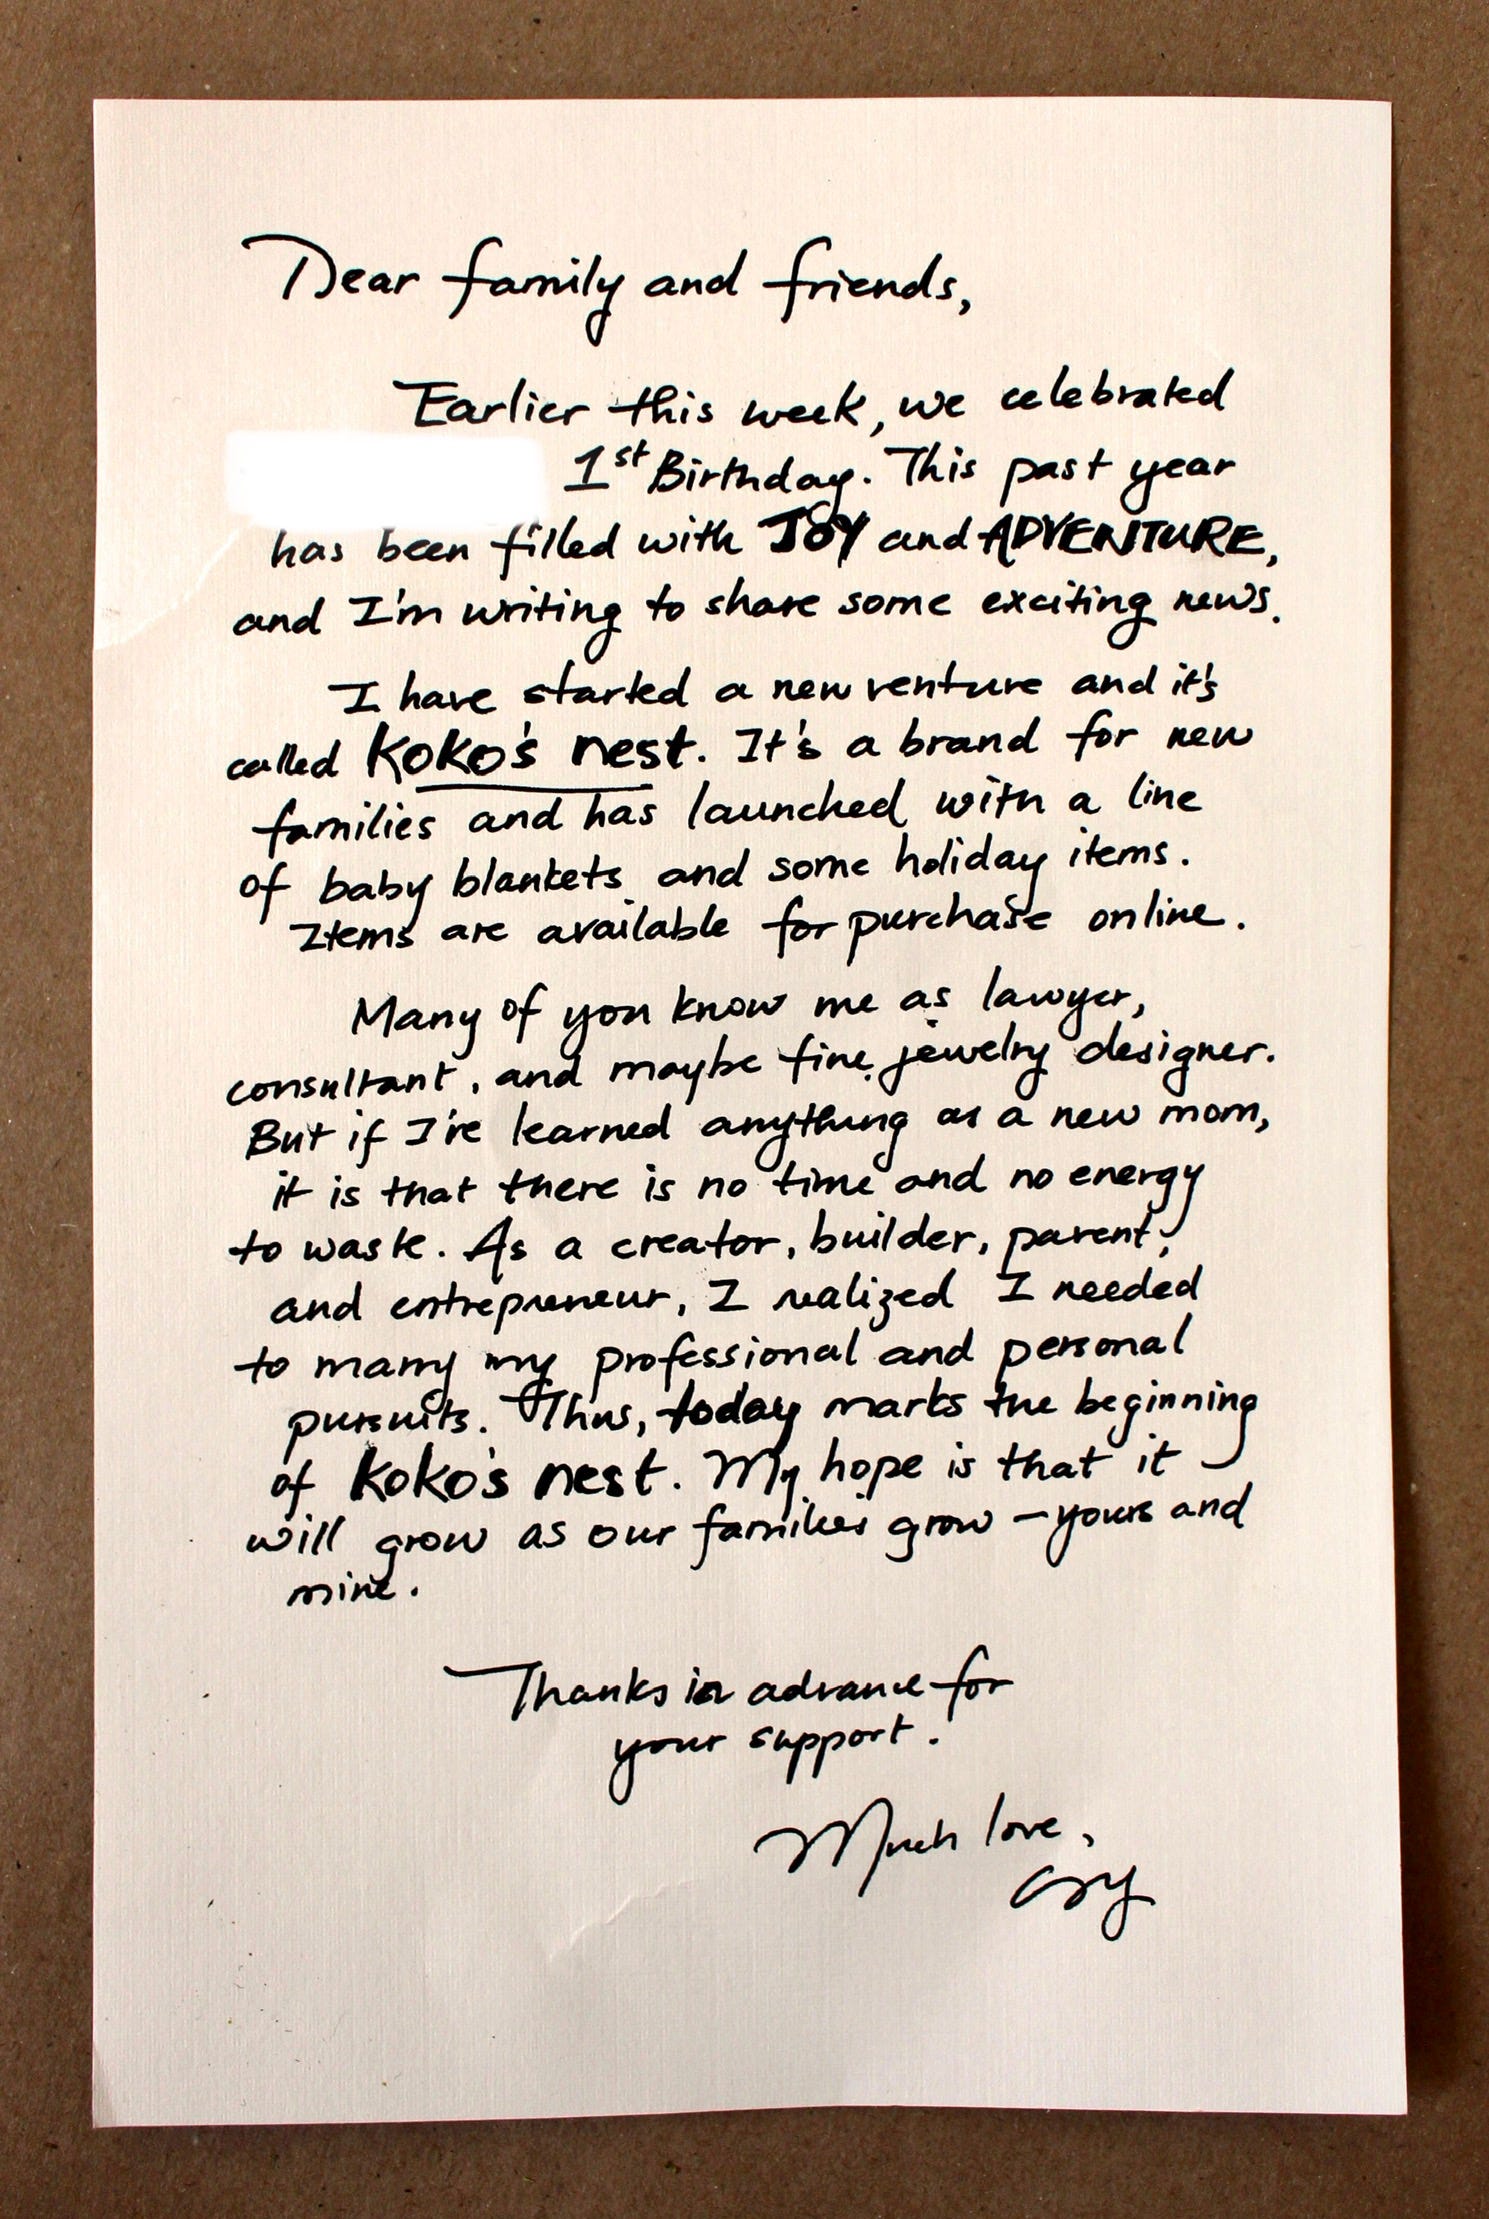 Dear family and friends,
Earlier this week, we celebrated
1st Birthday. This past year
has been filled with JOY and ADVENTURE,
and I'm writing to share some exciting news.
I have started a new venture and it's
called KOKO's nest. It's a brand for new
families and has launched with a line
of baby blankets and some holiday items.
Items are available for purchase online.
Many of you know me as lawyer,
consultant, and maybe fine jewelry designer.
But if I've learned anything as a new mom,
it is that there is no time and no energy
to waste. As a creator, builder, parent,
and entrepreneur, I realized I needed
to marry my professional and personal
pursuits. Thus, today marks the beginning
of KOKO's nest. My hope is that it
will grow as our families grow – yours and
mine.
Thanks in advance for
your support.
Much love,